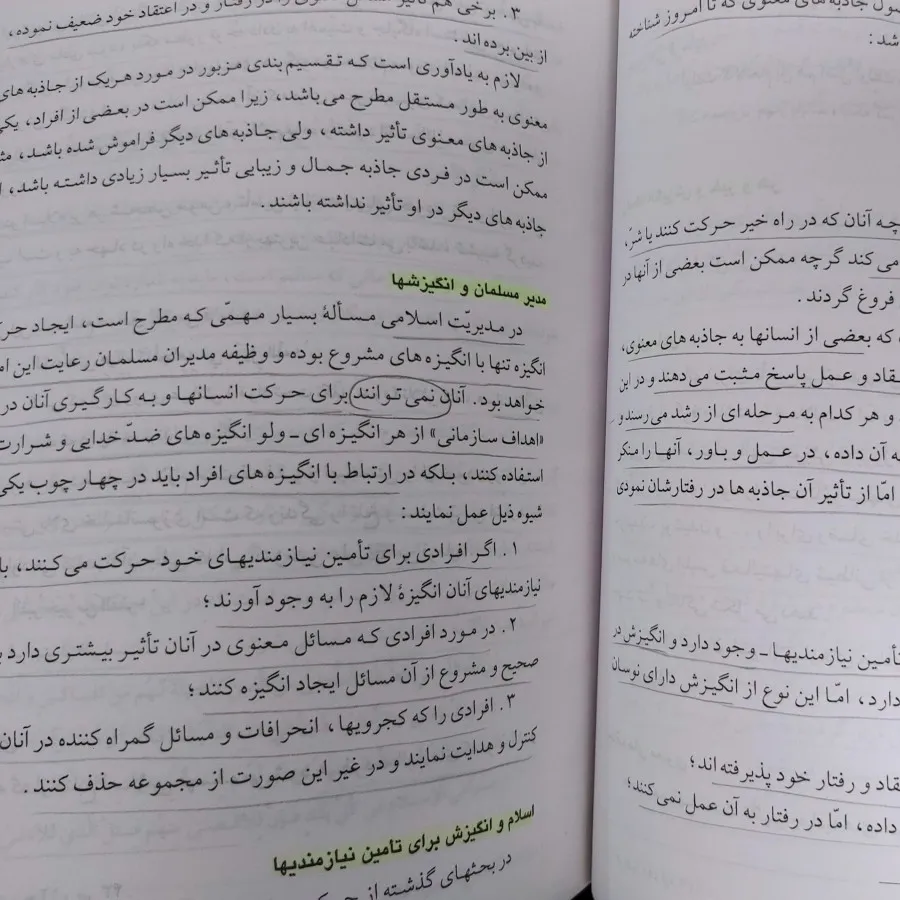 صول جاذبه های معنوی که تا امروز شناخته
شد:
چه آنان که در راه خیر حرکت کنند یا شرّ،
می کند گرچه ممکن است بعضی از آنها در
فروغ گردند.
که بعضی از انسانها به جاذبه های معنوی،
قاد و عمل پاسخ مثبت می دهند و در این
و هر کدام به مرحله ای از رشد می رسند و
ه آن داده، در عمل و باور، آنها را منکر
امّا از تأثیر آن جاذبه ها در رفتارشان نمودی
تأمین نیازمندیها ـ وجود دارد و انگیزش در
دارد، امّا این نوع از انگیزش دارای نوسان
قاد و رفتار خود پذیرفته اند؛
داده، امّا در رفتار به آن عمل نمی کنند؛
۳. برخی هم تأثیر معنوی را در رفتار و در اعتقاد خود ضعیف نموده،
از بین برده اند.
لازم به یادآوری است که تقسیم بندی مزبور در مورد هریک از جاذبه های
معنوی به طور مستقل مطرح می باشد، زیرا ممکن است در بعضی از افراد، یکی
از جاذبه های معنوی تأثیر داشته، ولی جاذبه های دیگر فراموش شده باشد،
ممکن است در فردی جاذبه جمال و زیبایی تأثیر بسیار زیادی داشته باشد،
جاذبه های دیگر در او تأثیر نداشته باشند.
مدیر مسلمان و انگیزشها
در مدیریّت اسلامی مسألهٔ بسیار مهمّی که مطرح است، ایجاد حرک
انگیزه تنها با انگیزه های مشروع بوده و وظیفه مدیران مسلمان رعایت این ام
خواهد بود. آنان نمی توانند برای حرکت انسانها و به کارگیری آنان در
«اهداف سازمانی» از هر انگیزه ای ـ ولو انگیزه های ضدّ خدایی و شرارت
استفاده کنند، بلکه در ارتباط با انگیزه های افراد باید در چهار چوب یکی
شیوه ذیل عمل نمایند:
۱. اگر افرادی برای تأمین نیازمندیهای خود حرکت می کنند، با
نیازمندیهای آنان انگیزهٔ لازم را به وجود آورند؛
۲. در مورد افرادی که مسائل معنوی در آنان تأثیر بیشتری دارد
صحیح و مشروع از آن مسائل ایجاد انگیزه کنند؛
۳. افرادی را که کجرویها، انحرافات و مسائل گمراه کننده در آنان
کنترل و هدایت نمایند و در غیر این صورت از مجموعه حذف کنند.
اسلام و انگیزش برای تأمین نیازمندیها
در بحثهای گذشته از